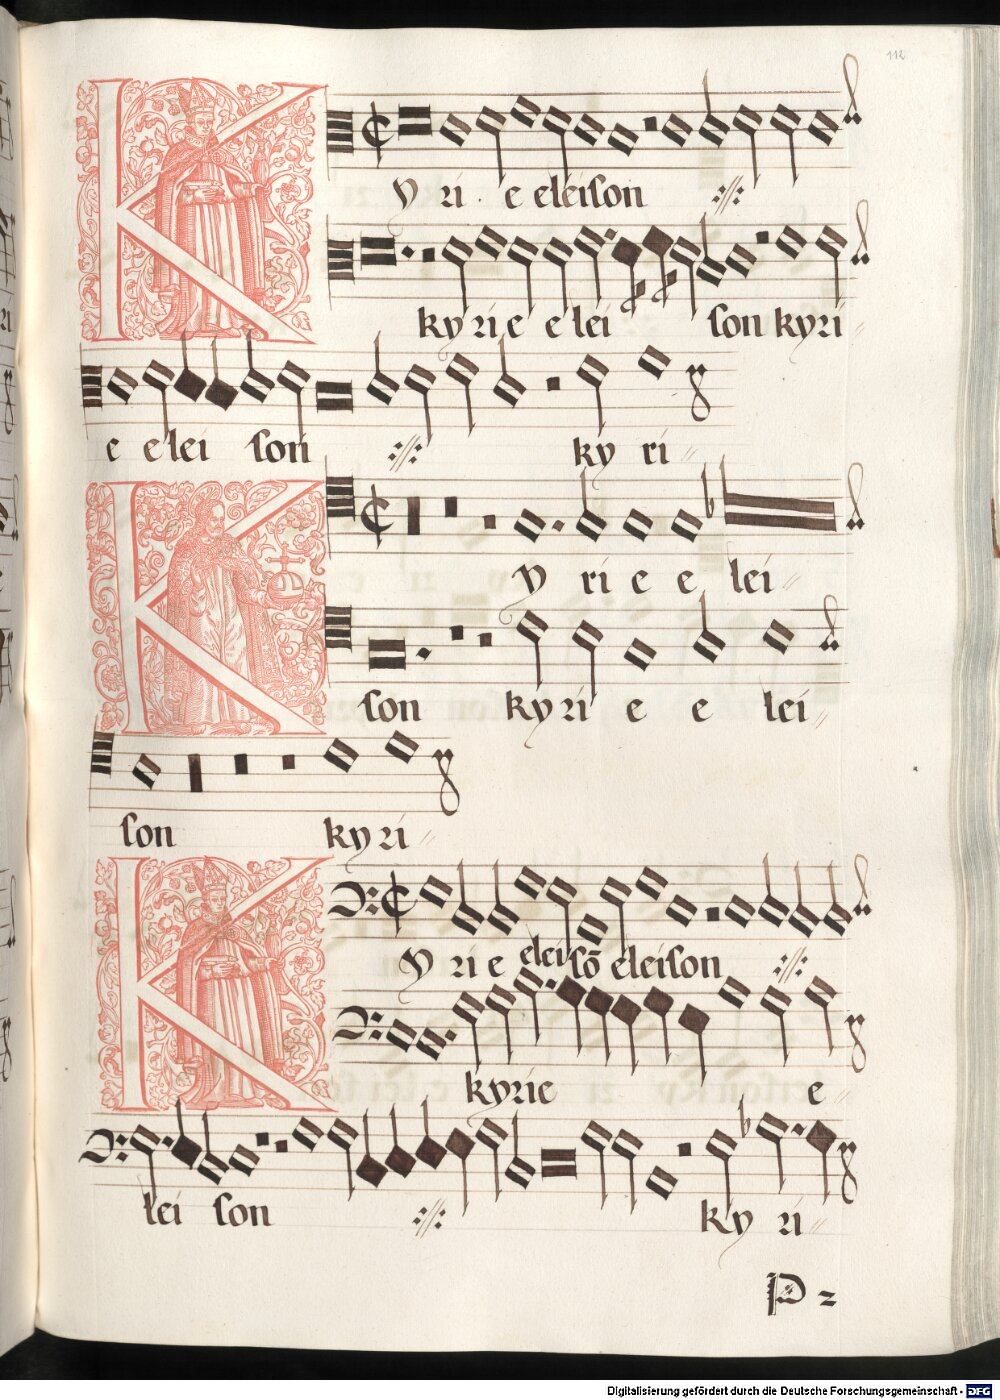 112
K yri e eleison ://:
kyrie elei son kyri
e elei son :// : ky ri
K y ri e e lei
son kyri e e lei
son kyri
K y ri e elei sõ eleison :// :
kyrie e
lei son :// : ky ri
P 2
Digitalisierung gefördert durch die Deutsche Forschungsgemeinschaft - DFG